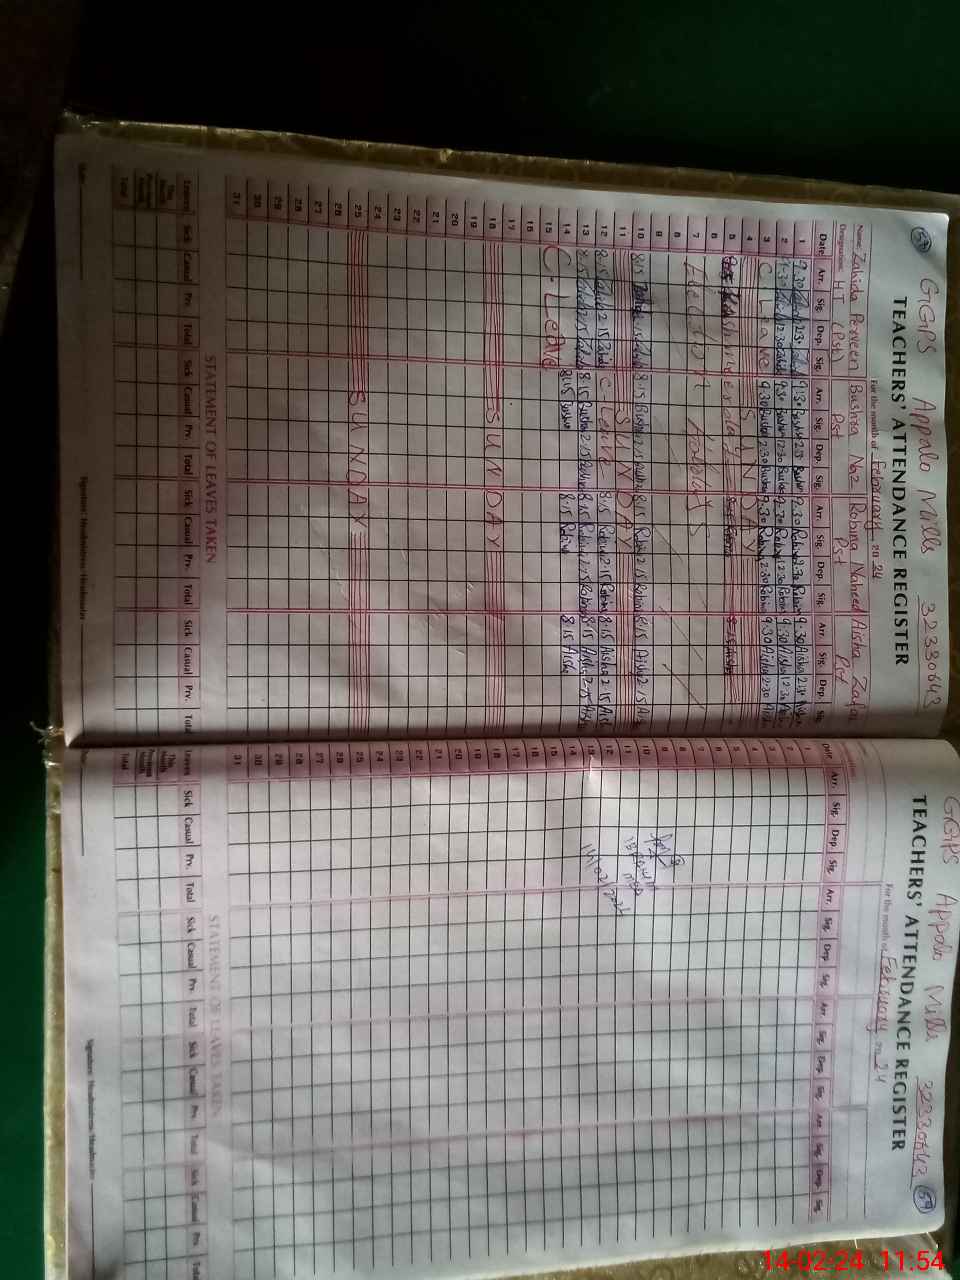 59
GGPS Appalo Mills 32330643
TEACHERS' ATTENDANCE REGISTER
For the month of February 20 24
Name: Zahida Perveen Bushra Naz Robina Naheed Aisha Zafar
Designation: HT (Pst) Pst Pst Pst
Date Arr. Sig. Dep. Sig. Arr. Sig. Dep. Sig. Arr. Sig. Dep. Sig. Arr. Sig. Dep. Sig.
1 9:30 2:30 9:30 Bushra 2:30 Bushra 9:30 Robina 2:30 Robina 9:30 Aisha 2:30 Aisha
2 9:30 12:30 9:30 Bushra 12:30 Bushra 9:30 Robina 12:30 Robina 9:30 Aisha 12:30 Aisha
3 C Leave 9:30 Bushra 2:30 Bushra 9:30 Robina 2:30 Robina 9:30 Aisha 2:30 Aisha
4 SUNDAY
5
6
7 Election holidays
8
9
10 8:15 2:15 8:15 Bushra 2:15 Bushra 8:15 Robina 2:15 Robina 8:15 Aisha 2:15 Aisha
11 SUNDAY
12 8:15 2:15 C-Leave 8:15 Robina 2:15 Robina 8:15 Aisha 2:15 Aisha
13 8:15 2:15 8:15 Bushra 2:15 Bushra 8:15 Robina 2:15 Robina 8:15 Aisha 2:15 Aisha
14 8:15 Bushra 8:15 Robina 8:15 Aisha
15 C. Leave
16
17
18 SUNDAY
19
20
21
22
23
24
25 SUNDAY
26
27
28
29
30
31
STATEMENT OF LEAVES TAKEN
Leaves Sick Casual Prv. Total Sick Casual Prv. Total Sick Casual Prv. Total Sick Casual Prv. Total
This Month
Previous Month
Total
Date Signature Headmistress/Headmaster
GGPS Appalo Mills 32330643 59
TEACHERS' ATTENDANCE REGISTER
For the month of February 20 24
Date Arr. Sig. Dep. Sig. Arr. Sig. Dep. Sig. Arr. Sig. Dep. Sig. Arr. Sig. Dep. Sig.
1
2
3
4
5
6
7
8
9
10
11
12
13
14
15
16
17
18
19
20
21
22
23
24
25
26
27
28
29
30
31
14/02/2024
STATEMENT OF LEAVES TAKEN
Leaves Sick Casual Prv. Total Sick Casual Prv. Total Sick Casual Prv. Total Sick Casual Prv. Total
This Month
Previous Month
Total
Signature Headmistress/Headmaster
14-02-24 11:54